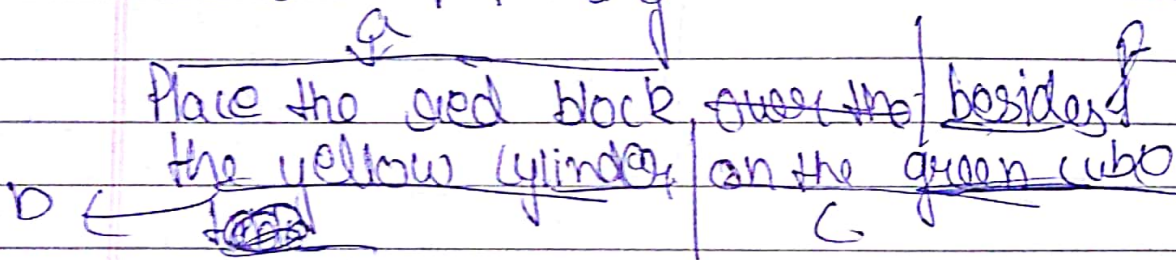 a
Place the red block, over the besides
the yellow cylinder, on the green cube
b
C